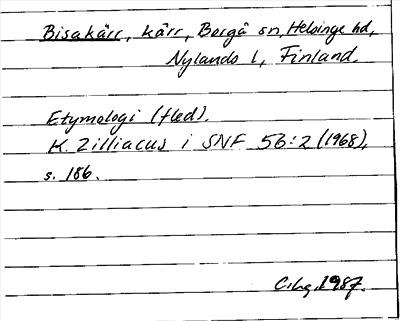 Bisakärr, kärr, Borgå sn, Helsinge hd,
Nylands l, Finland.
Etymologi (fled).
K. Zilliacus i SNF 56:2 (1968),
s. 186.
C.Lg. 1987.